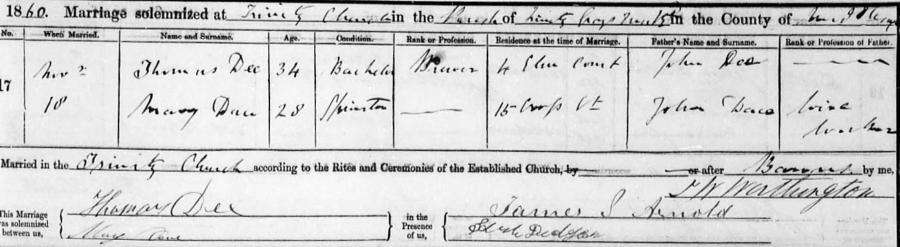 1860. Marriage solemnized at Trinity Church in the Parish of Trinity Gray's Inn Rd in the County of
No. When Married. Name and Surname. Age. Condition. Rank or Profession. Residence at the time of Marriage. Father's Name and Surname. Rank or Profession of Father.
17 Novr Thomas Dee 34 Bachelor 4 Elm Court John Dee
18 Mary 28 Spinster 15 Cross St John Wire
Worker
Married in the Trinity Church according to the Rites and Ceremonies of the Established Church, by or after Banns by me,
T W Worthington
This Marriage was solemnized between us, Thomas Dee in the Presence of us, James J Arnold
Mary